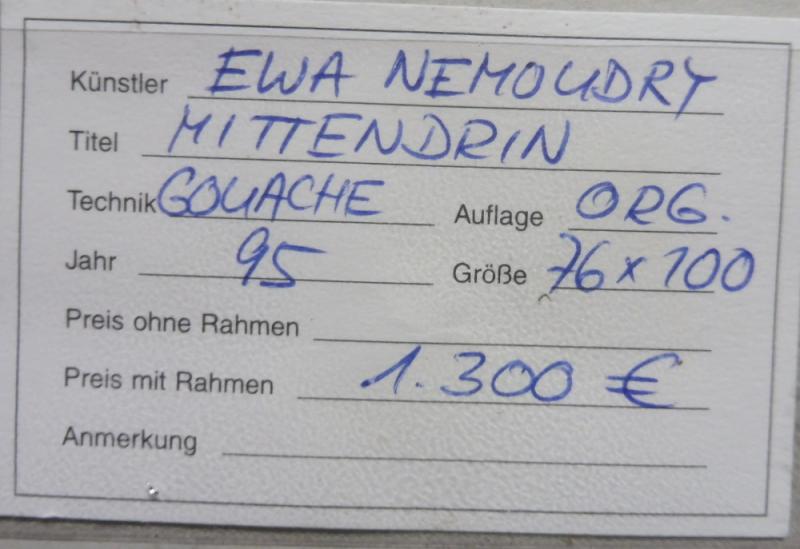 Künstler EWA NEMOUDRY
Titel MITTENDRIN
Technik GOUACHE Auflage ORG.
Jahr 95 Größe 76 x 100
Preis ohne Rahmen
Preis mit Rahmen 1.300 €
Anmerkung